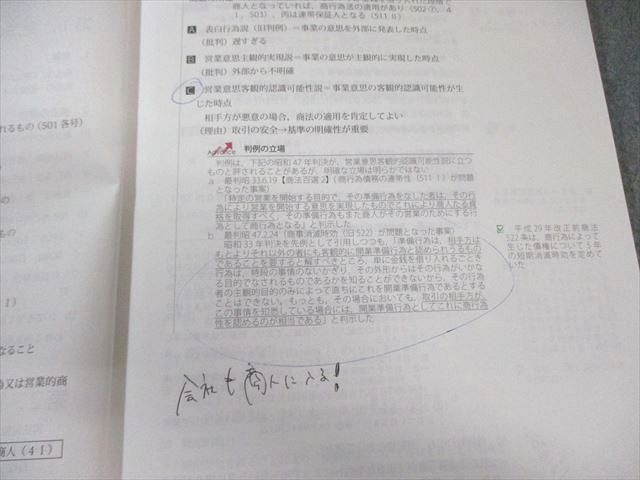 商人となっていれば、商行為法の適用があり（502②, 4
1, 503）、丙は連帯保証人となる（511Ⅱ）
A 表白行為説（旧判例）＝事業の意思を外部に発表した時点
（批判）遅すぎる
B 営業意思主観的実現説＝事業の意思が主観的に実現した時点
（批判）外部から不明確
C 営業意思客観的認識可能性説＝事業意思の客観的認識可能性が生
じた時点
相手方が悪意の場合，商法の適用を肯定してよい
（理由）取引の安全→基準の明確性が重要
Advance 判例の立場
判例は，下記の昭和47年判決が，営業意思客観的認識可能性説に立つ
ものと評されることがあるが，明確な立場は明らかではない
a 最判昭33.6.19【商法百選2】（商行為債務の連帯性（511Ⅰ）が問題
となった事案）
「特定の営業を開始する目的で，その準備行為をなした者は，その行
為により営業を開始する意思を実現したものでこれにより商人たる資
格を取得すべく，その準備行為もまた商人がその営業のためにする行
為として商行為となる」と判示した
b 最判昭47.2.24（商事消滅時効（旧522）が問題となった事案）
昭和33年判決を先例として引用しつつも，「準備行為は，相手方は
もとよりそれ以外の者にも客観的に開業準備行為と認められうるもの
であることを要すると解すべきところ，単に金銭を借り入れるごとき
行為は，特段の事情のないかぎり，その外形からはその行為がいかな
る目的でなされるものであるかを知ることができないから，その行為
者の主観的目的のみによって直ちにこれを開業準備行為であるとする
ことはできない。もっとも，その場合においても，取引の相手方が，
この事情を知悉している場合には，開業準備行為としてこれに商行為
性を認めるのが相当である」と判示した
平成29年改正前商法
522条は，商行為によって
生じた債権について5年
の短期消滅時効を定めて
いた
会社も商人に入る!
れるもの（501各号）
41）
なること
為又は営業的商
商人（41）